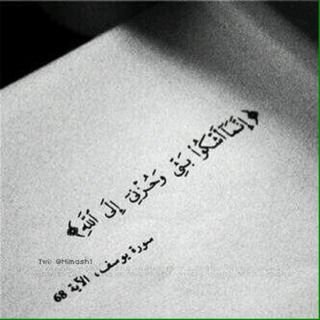 ﴿إِنَّمَا أَشْكُواْ بَثِّي وَحُزْنِي إِلَى اللَّهِ﴾
سورة يوسف، الآية 68
Twe @Himash1